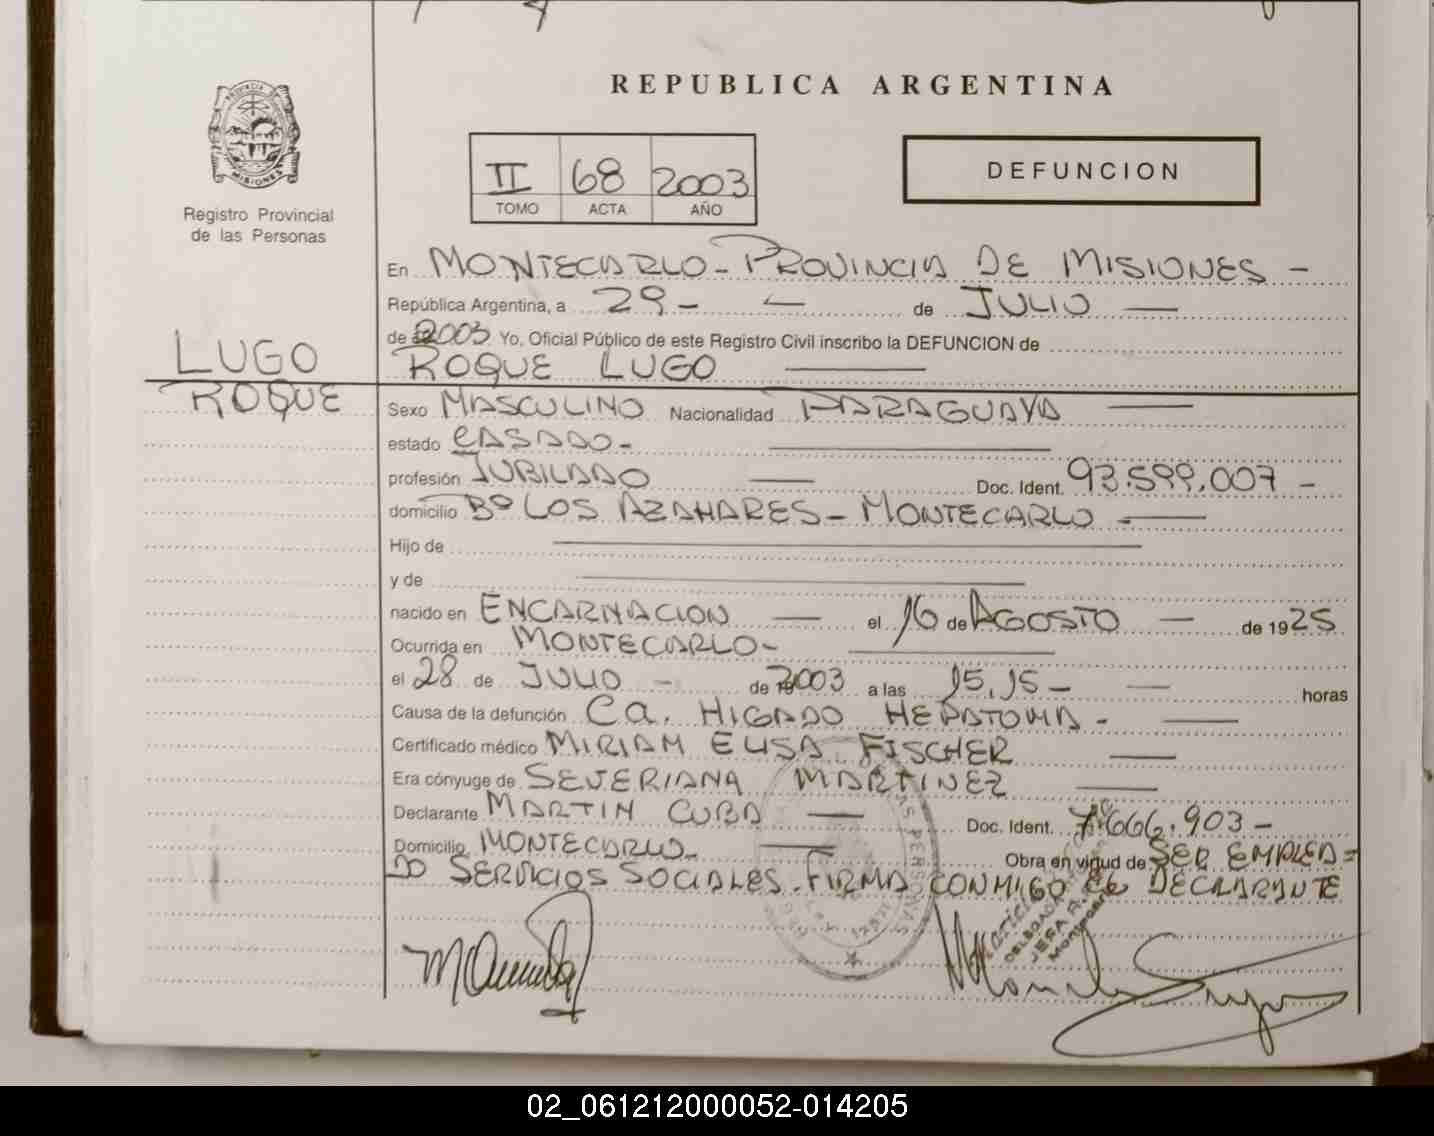 REPUBLICA ARGENTINA
PROVINCIA DE
MISIONES
Registro Provincial
de las Personas
II 68 2003
TOMO ACTA AÑO
DEFUNCION
En MONTECARLO - PROVINCIA DE MISIONES -
República Argentina, a 29 - de JULIO
de 2003 Yo, Oficial Público de este Registro Civil inscribo la DEFUNCION de
LUGO
ROQUE
ROQUE LUGO
Sexo MASCULINO Nacionalidad PARAGUAYA
estado CASADO -
profesión JUBILADO Doc. Ident. 93.599.007 -
domicilio Bº LOS AZAHARES - MONTECARLO -
Hijo de
y de
nacido en ENCARNACION el 16 de AGOSTO de 1925
Ocurrida en MONTECARLO -
el 28 de JULIO - de 2003 a las 15,15 - horas
Causa de la defunción Ca. HIGADO HEPATOMA -
Certificado médico MIRIAM ELISA FISCHER
Era cónyuge de SEVERIANA MARTINEZ
Declarante MARTIN CUBA Doc. Ident. 7.666.903 -
Domicilio MONTECARLO - Obra en virtud de SER EMPLEA=
DO SERVICIOS SOCIALES. FIRMA CONMIGO EL DECLARANTE
02_061212000052-014205